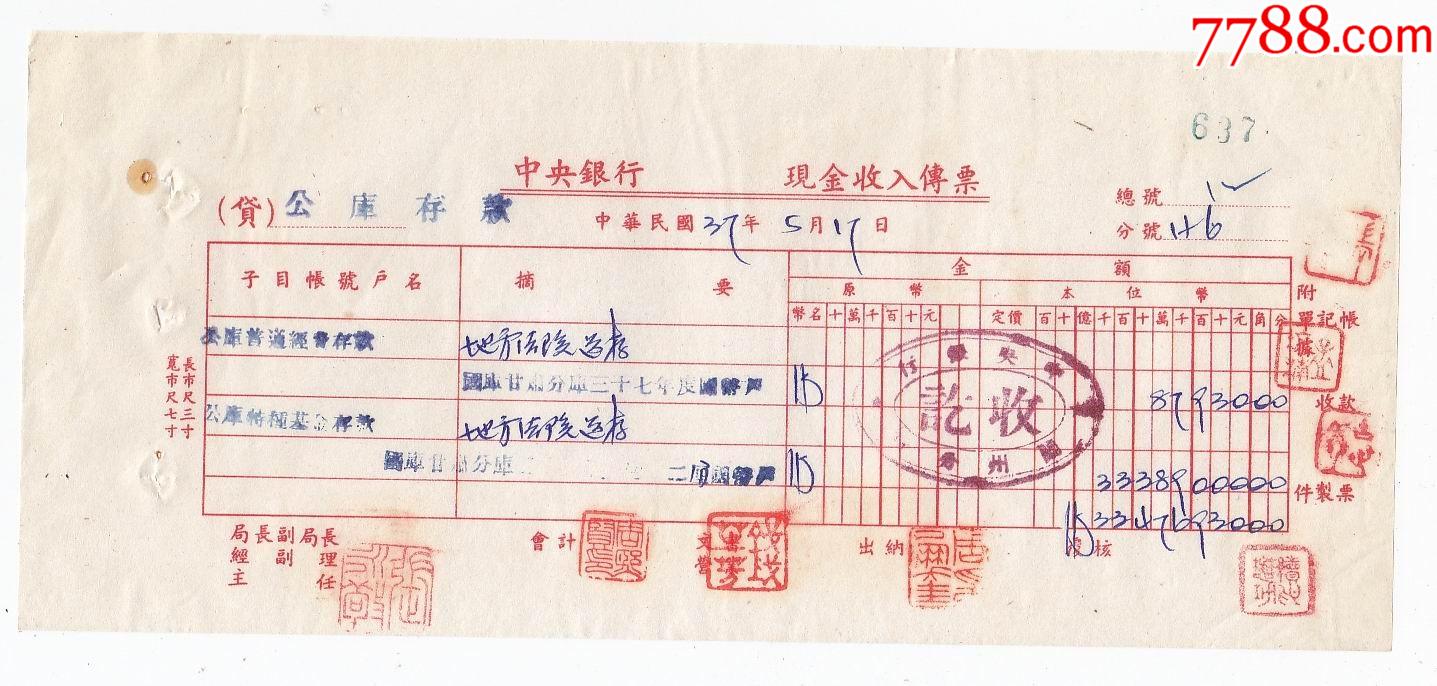 7788.com
637
中央銀行 現金收入傳票
(貸) 公庫存款
中華民國37年5月17日
總號
分號 146
子目帳號戶名 摘要 金額
原幣 本位幣
幣名 十萬千百十元 定價 百十億千百十萬千百十元角分
附單據
記帳
收款
件製票
公庫普通經費存款 地方法院送存
國庫甘肅分庫三十七年度國幣戶 8793000
公庫特種基金存款 地方法院送存
國庫甘肅分庫 333890000
334769 3000
中央銀行
收訖
蘭州分
長市尺三寸
寬市尺七寸
局長 副局長
經副理
主任
會計
文書
營業
出納
覆核